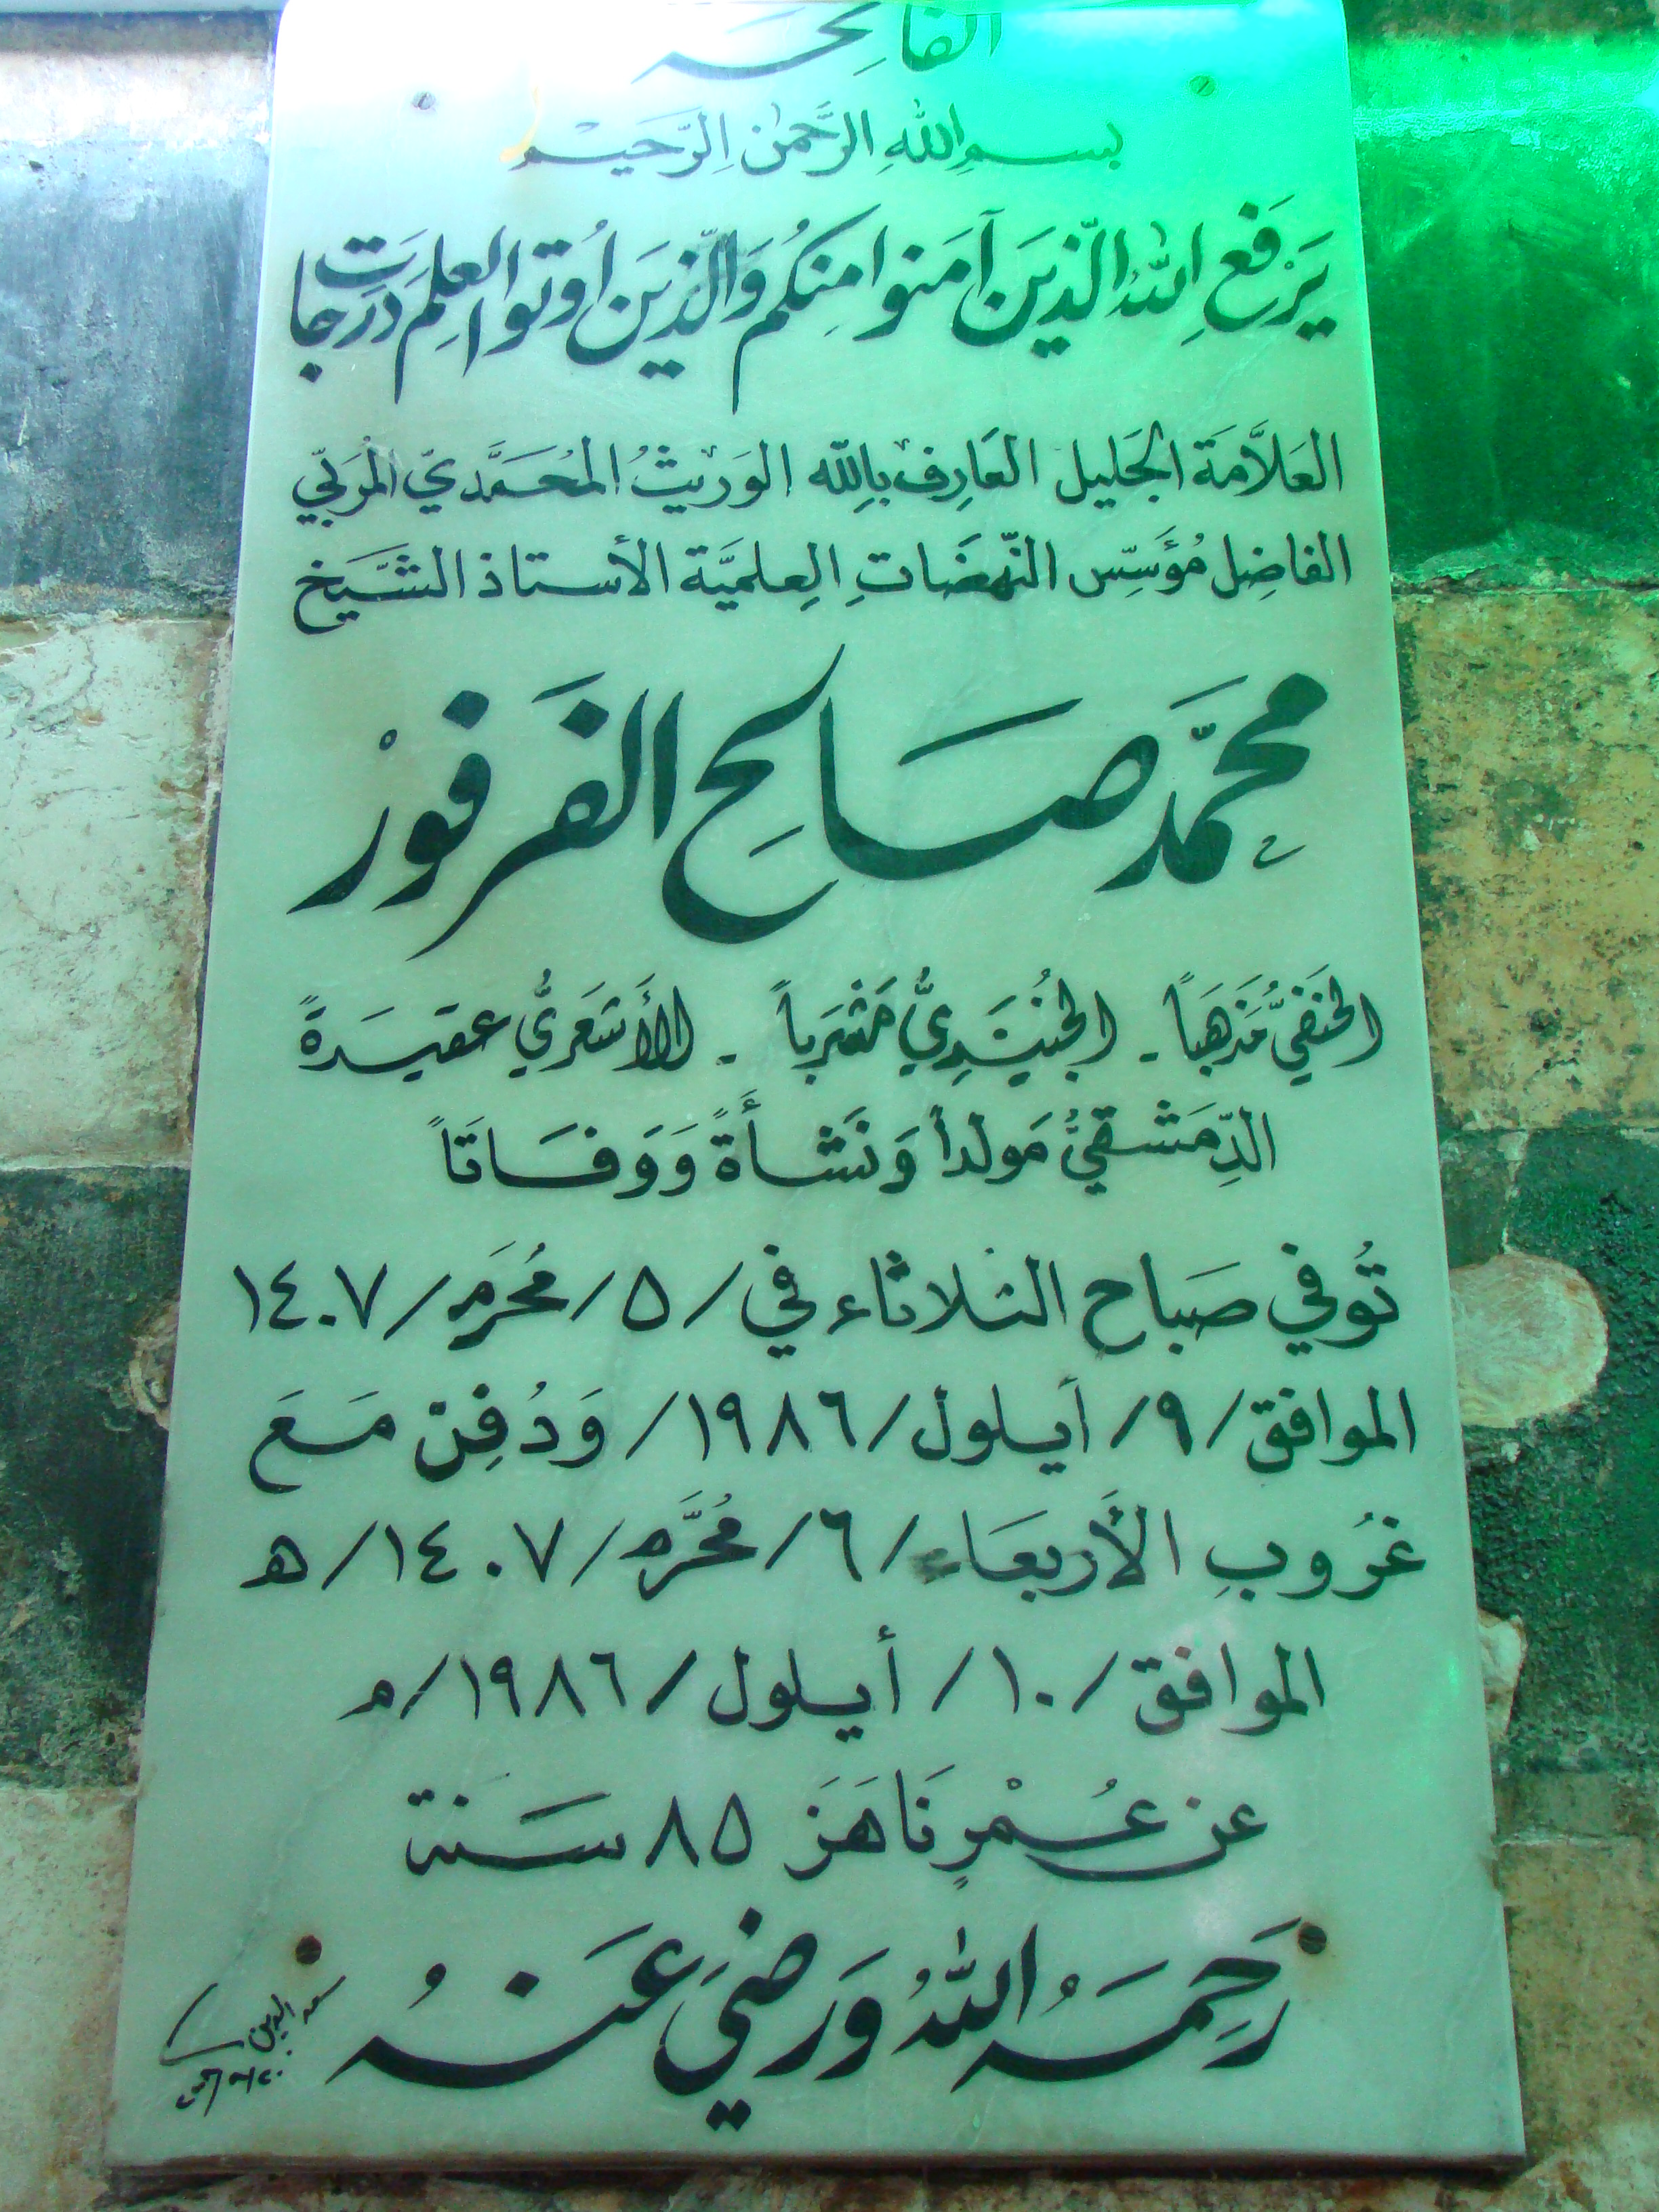 الفاتحة
بسم اللهِ الرَّحمٰن الرَّحيم
يَرْفَعِ اللهُ الّذينَ آمَنوا مِنكُم وَالّذينَ أُوتوا العِلمَ دَرَجات
العَلاَّمَة الجَليل العَارِف بالله الوَريثُ المُحَمَّديّ المُرَبّي
الفاضِل مُؤَسِّس النّهضَاتِ العِلميَّة الأستاذ الشَّيَخ
محمَّد صَالِح الفَرفورْ
الحَنَفيُّ مَذهَبَاً - الجُنَيْدِيُّ مَشرَباً - الأَشعَريُّ عقيدَةً
الدِّمَشقيُّ مَولداً وَنَشأَةً وَوَفَاتَاً
تُوفي صَباح الثلاثاء في / ٥ / مُحَرَم / ١٤٠٧
الموافق / ٩ / أيلول / ١٩٨٦ / وَدُفِن مَعَ
غرُوبِ الأَربعَاء / ٦ / مُحَرَّم / ١٤٠٧ / ه
الموافق / ١٠ / أيلول / ١٩٨٦ / م
عن عُمْرٍ نَاهَزَ ٨٥ سَنة
رَحِمَهُ اللهُ وَرَضيَ عَنهُ
سعد الدين